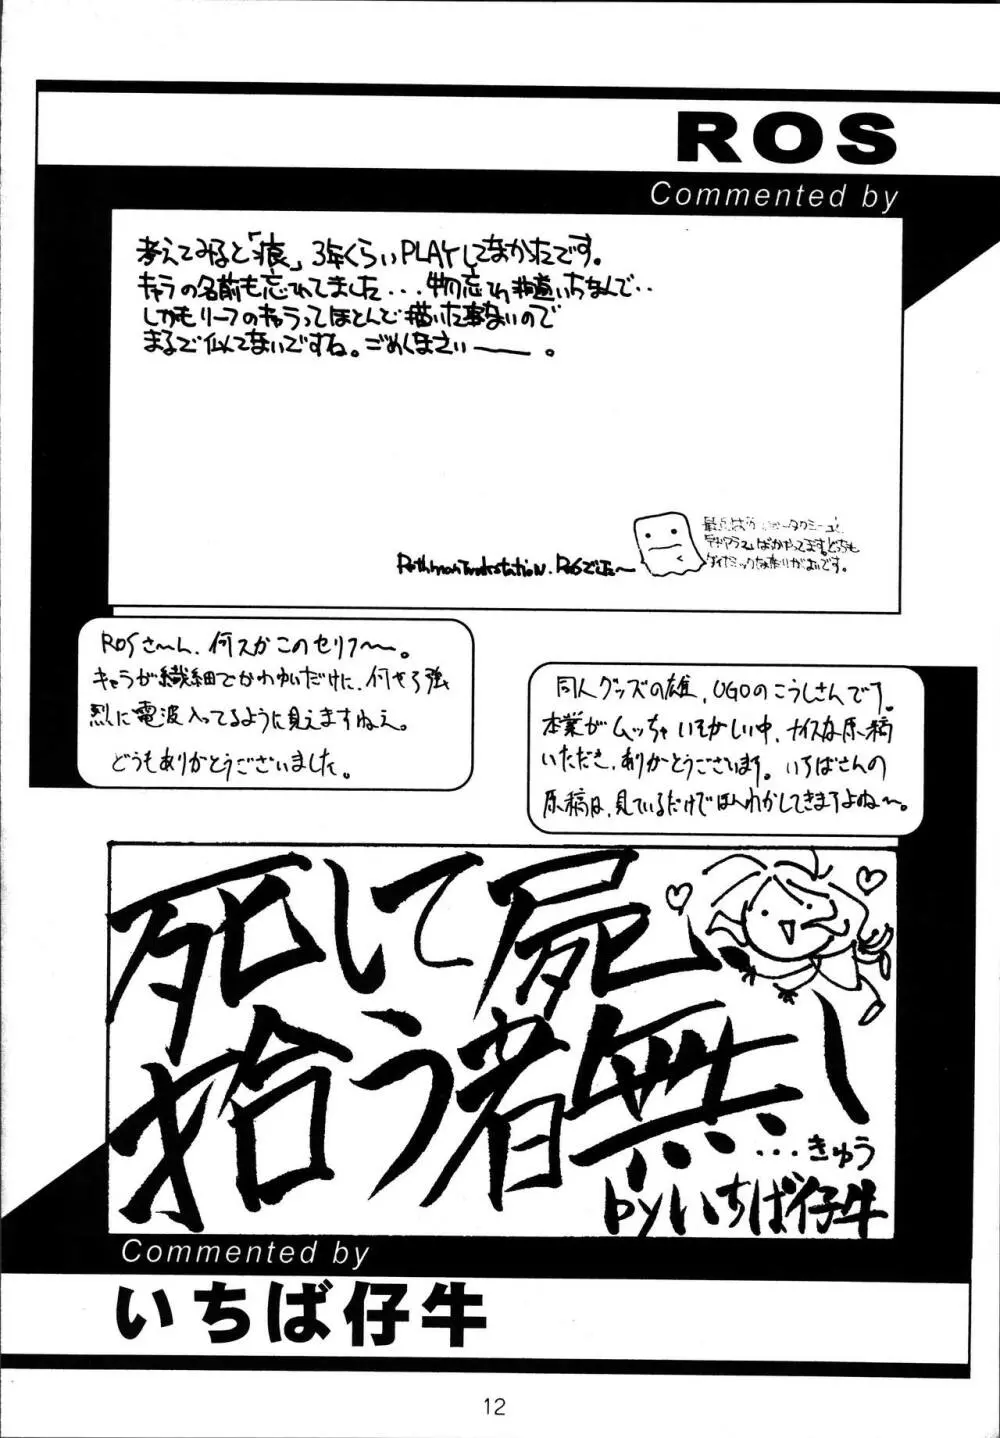 ROS
Commented by
考えてみると「痕」3年くらいPLAYしてなかたです。
キャラの名前も忘れてました...物忘れ
しかもリーフのキャラってほとんど描いた事ないので
まるで似てないですね。ごめんなさい――。
ROSでした〜
ダイナミックな
ROSさ〜ん、何スかこのセリフ〜。
キャラが繊細でかわゆいだけに、何やら強
烈に電波入ってるように見えますねえ。
どうもありがとうございました。
同人グッズの雄、UGOのこうしさんです。
本業がムッチャいそがしい中、ナイスな原稿
いただき、ありがとうございます。いちばさんの
原稿は、見ているだけでほんわかしてきますよね〜。
死して屍
拾う者無し
...きゅう
byいちば仔牛
Commented by
いちば仔牛
12